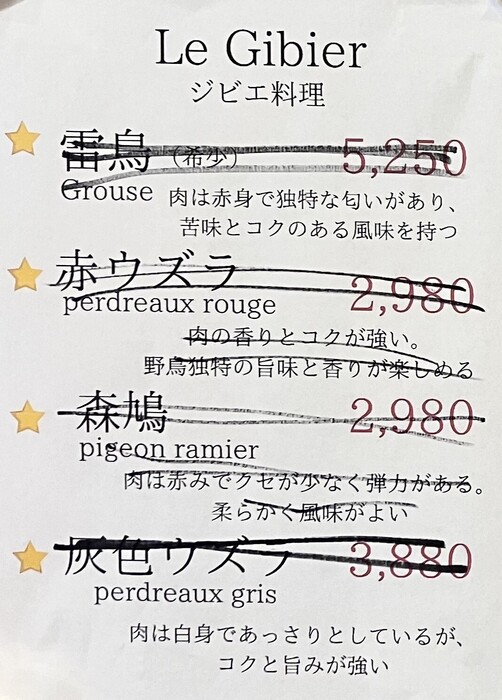 Le Gibier
ジビエ料理
雷鳥（希少） 5,250
Grouse 肉は赤身で独特な匂いがあり、
苦味とコクのある風味を持つ
赤ウズラ 2,980
perdreaux rouge
肉の香りとコクが強い。
野鳥独特の旨味と香りが楽しめる
森鳩 2,980
pigeon ramier
肉は赤みでクセが少なく弾力がある。
柔らかく風味がよい
灰色ウズラ 3,880
perdreaux gris
肉は白身であっさりとしているが、
コクと旨みが強い